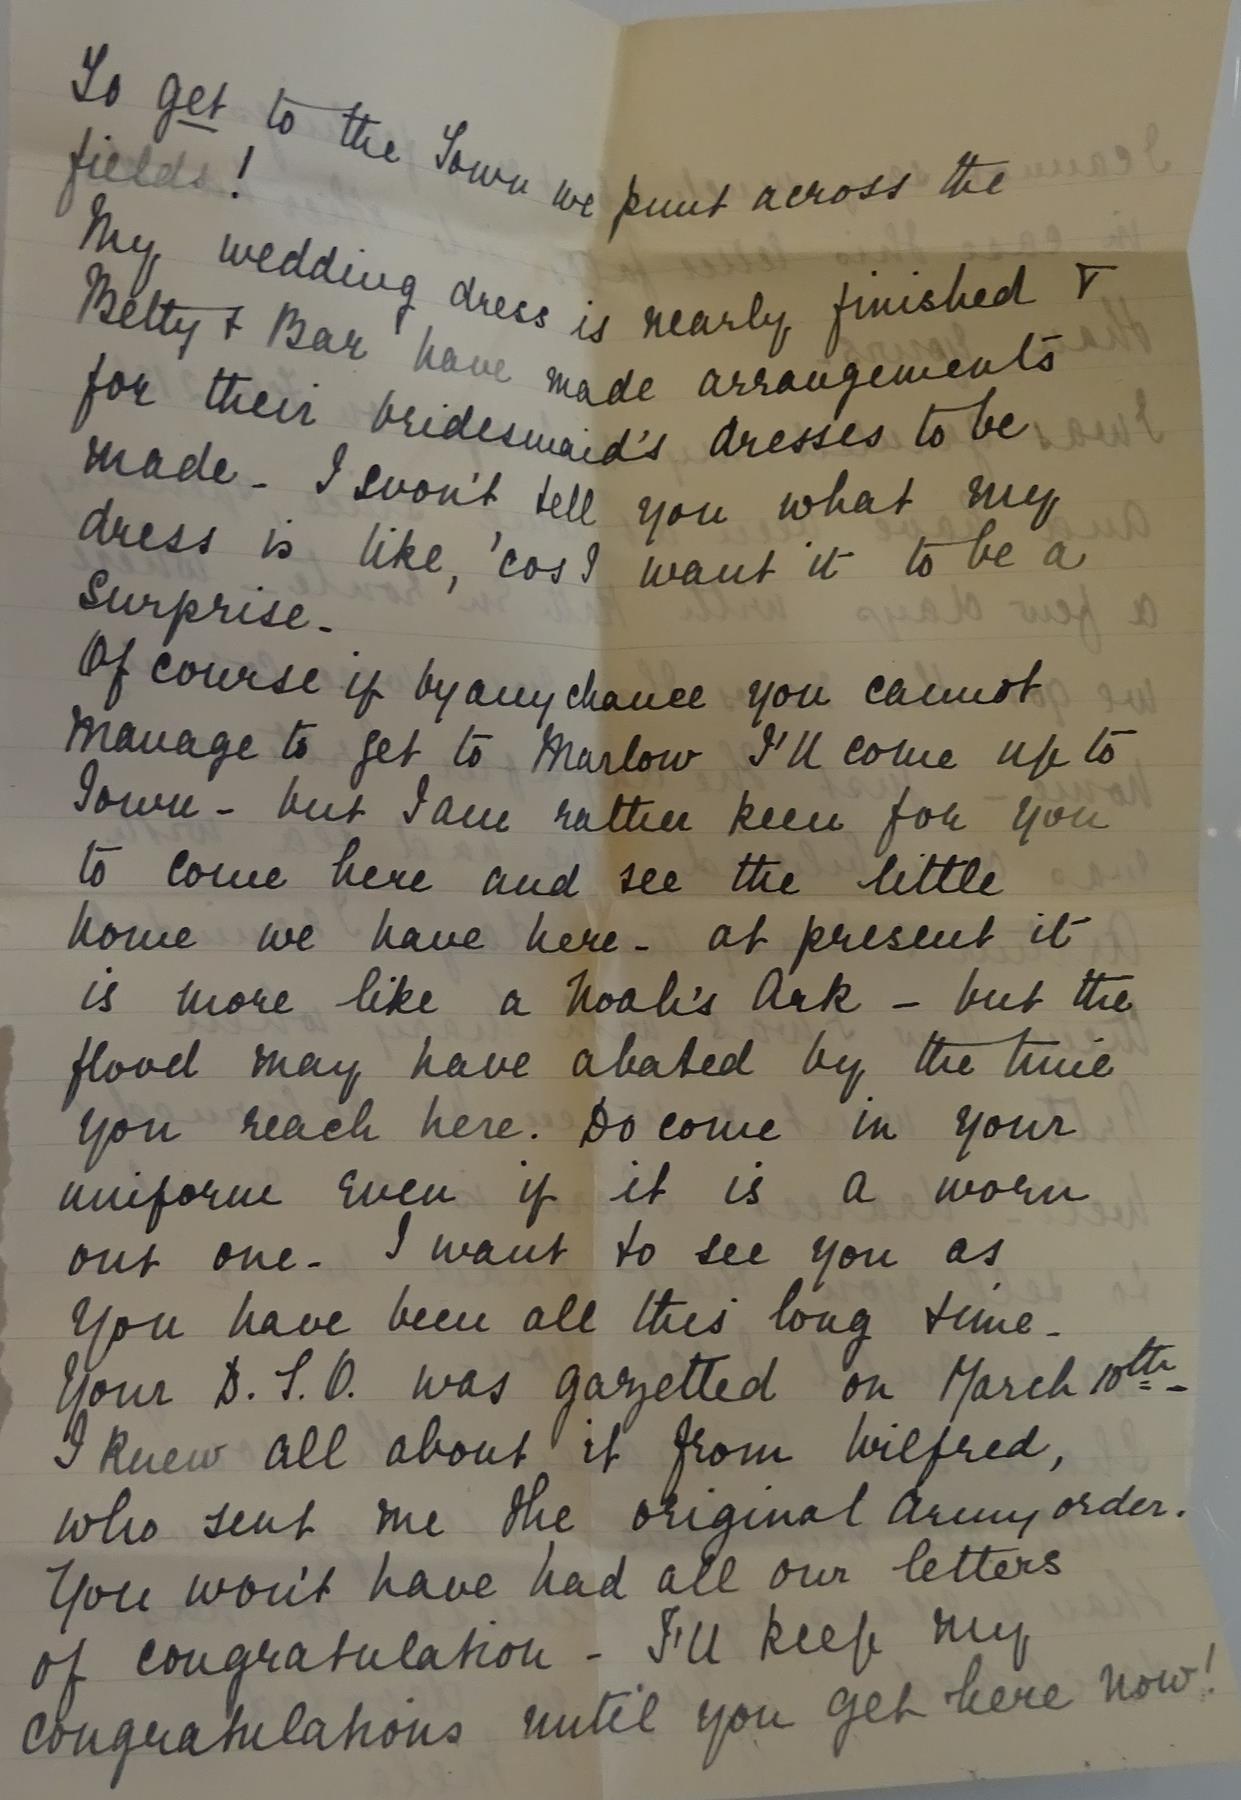 To get to the Town we punt across the
fields!
My wedding dress is nearly finished &
Betty & Bar have made arrangements
for their bridesmaid's dresses to be
made - I won't tell you what my
dress is like, 'cos I want it to be a
Surprise -
Of course if by any chance you cannot
manage to get to Marlow I'll come up to
Town - but I am rather keen for you
to come here and see the little
home we have here - at present it
is more like a Noah's Ark - but the
flood may have abated by the time
you reach here. Do come in your
uniform even if it is a worn
out one - I want to see you as
you have been all this long time -
Your D.S.O. was gazetted on March 10th -
I knew all about it from Wilfred,
who sent me the original Army order.
You won't have had all our letters
of congratulation - I'll keep my
congratulations until you get here now!